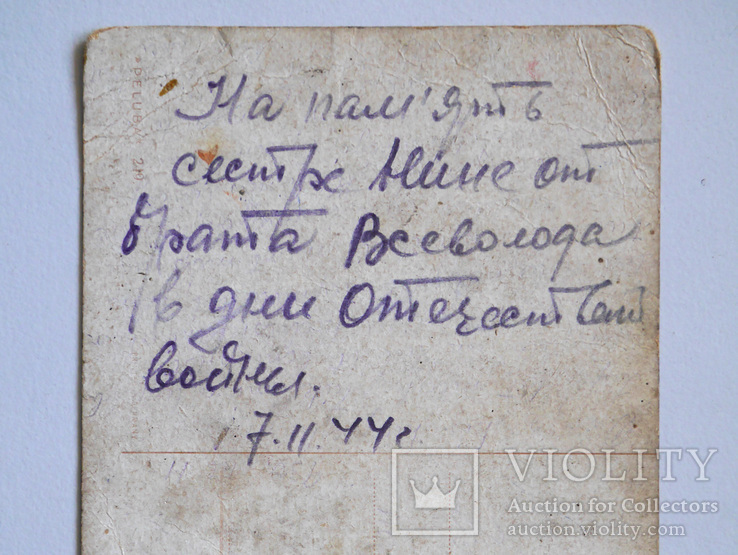 На пам'ять
сестре Нине от
брата Всеволода
в дни Отечествен
войны.
7.II.44г
VIOLITY
Auction for Collectors
auction.violity.com